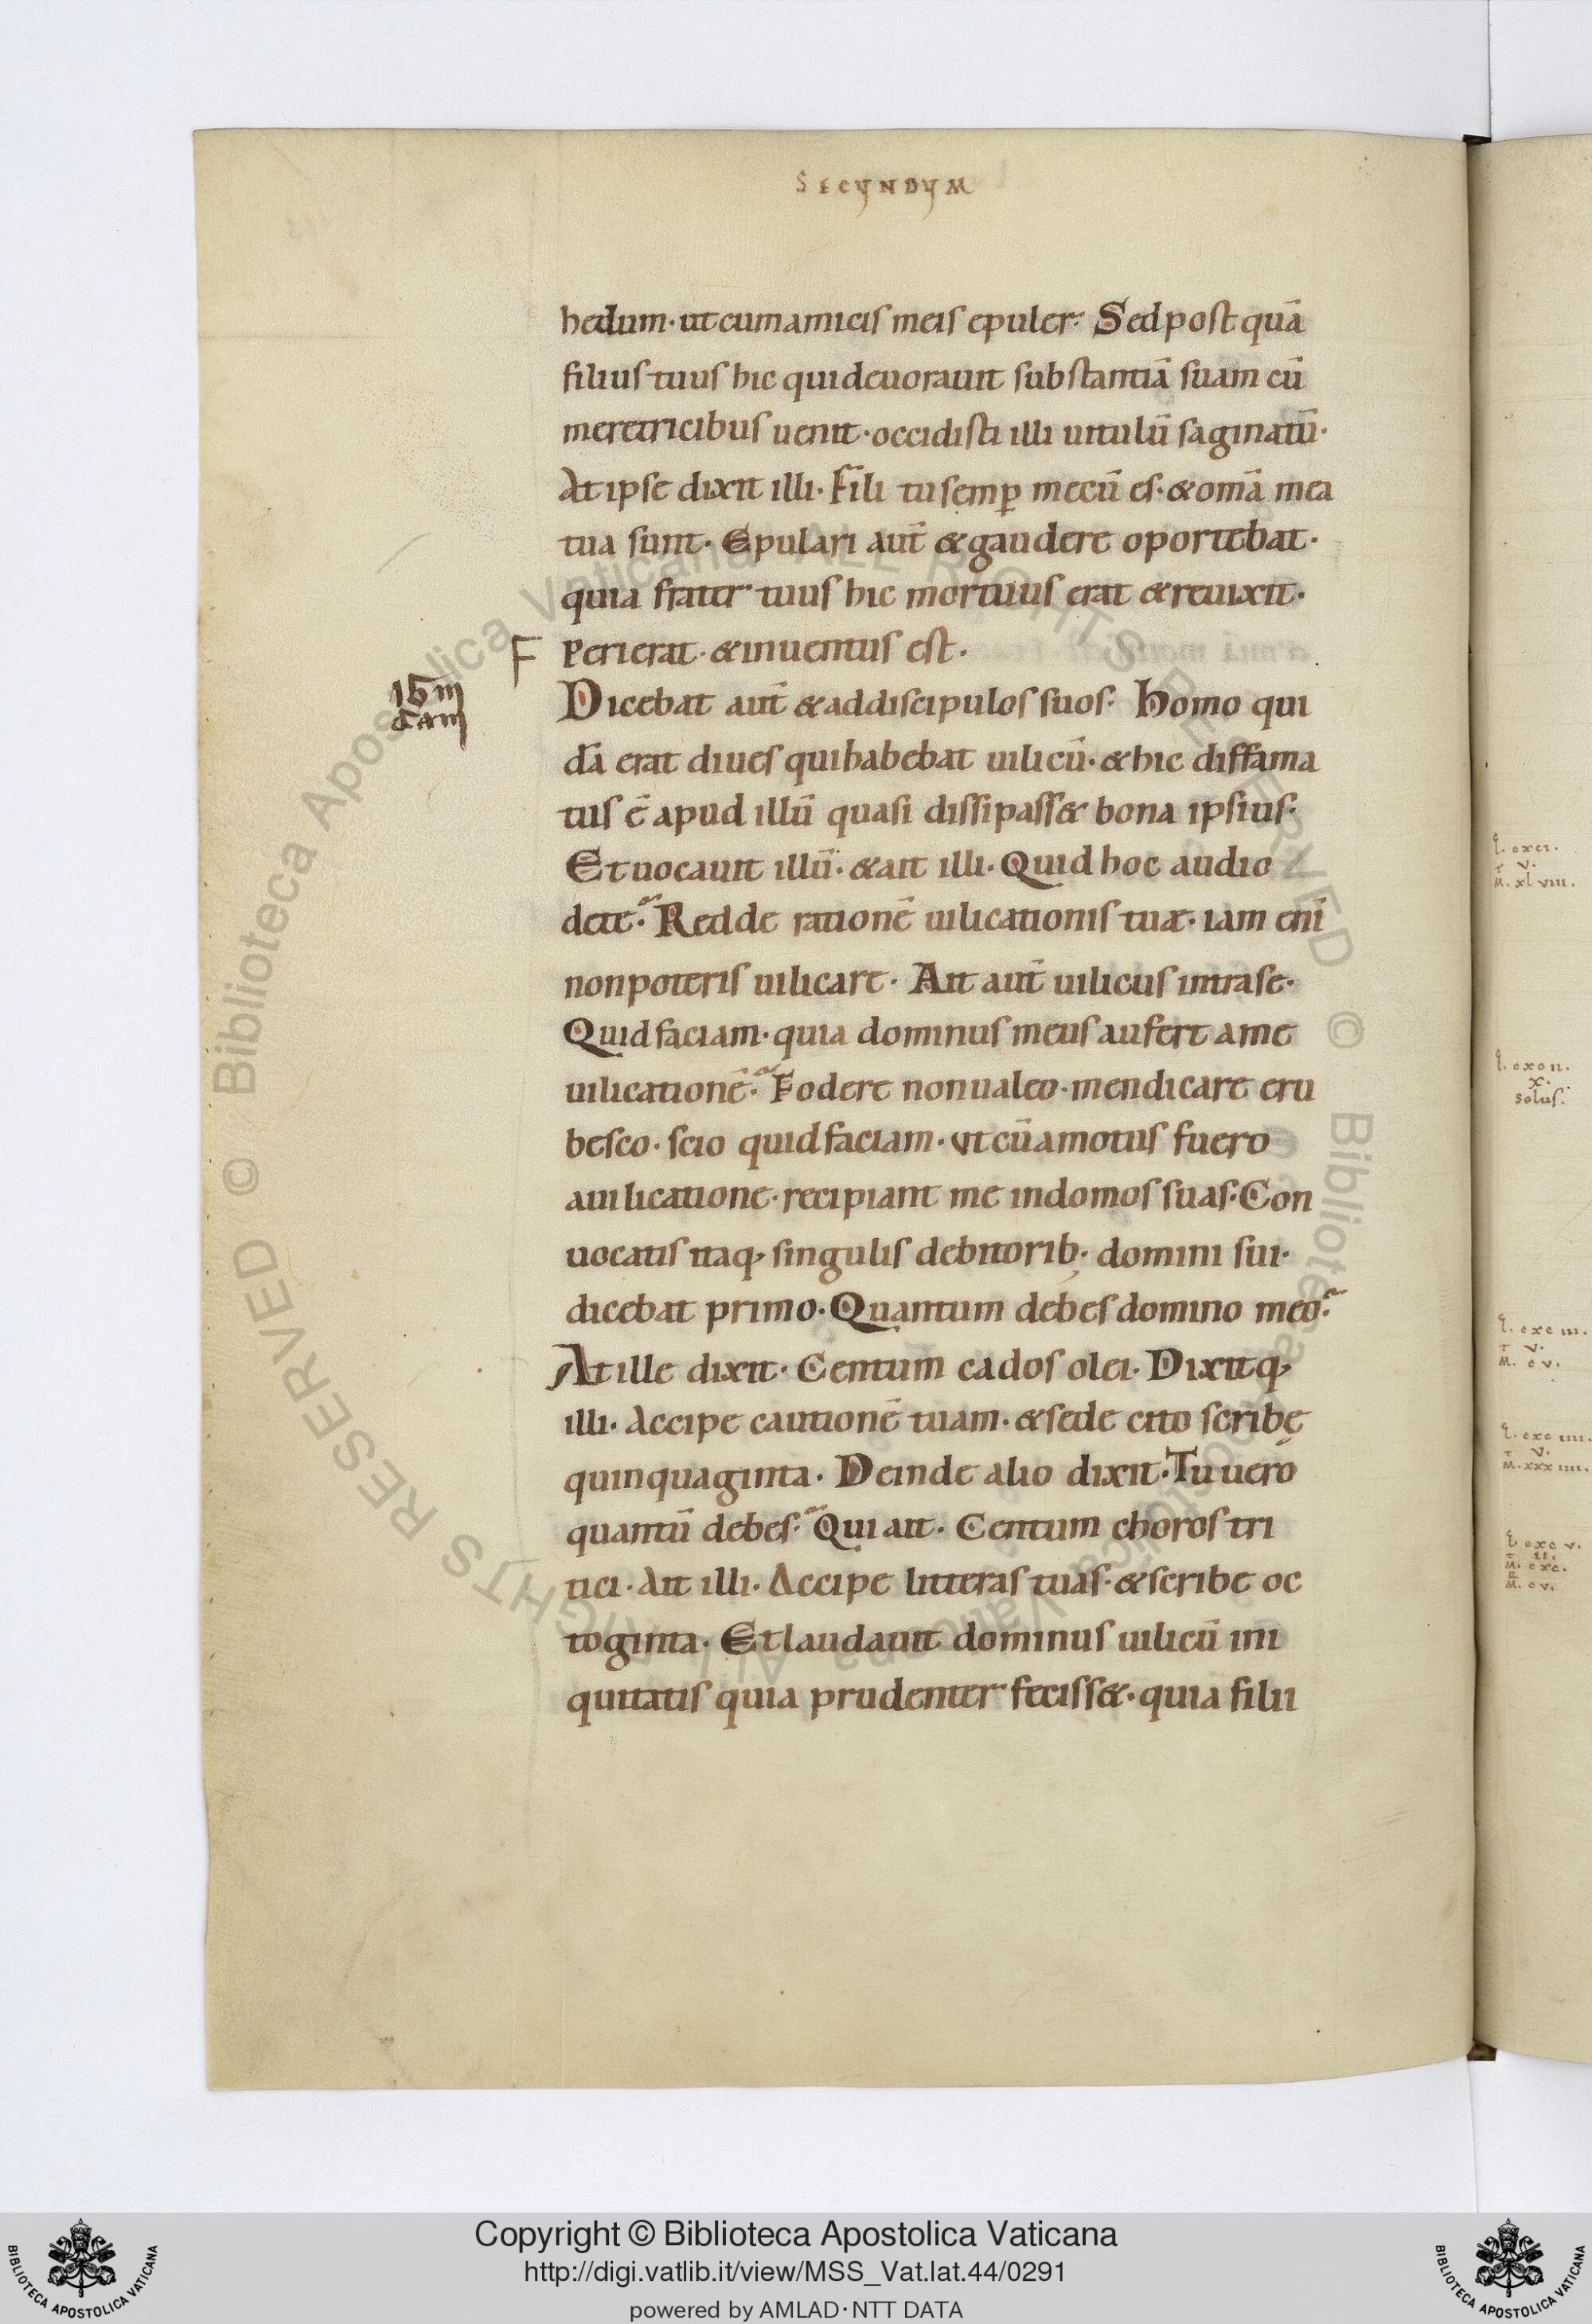 SECUNDUM
hedum· ut cum amicis meis epuler· Sed post quā
filius tuus hic qui deuorauit substantiā suam cū
meretricibus uenit· occidisti illi uitulū saginatū·
At ipse dixit illi· Fili tu semꝑ mecū es· & om̄a mea
tua sunt· Epulari aut̄ & gaudere oportebat·
quia frater tuus hic mortuus erat & reuixit·
F perierat· & inuentus est·
Dicebat aut̄ & ad discipulos suos· Homo qui
dā erat diues qui habebat uilicū· & hic diffama
tus ē apud illū quasi dissipass& bona ipsius·
Et uocauit illū· & ait illi· Quid hoc audio
de te? Redde rationē uilicationis tuæ· iam enī
non poteris uilicare· Ait aut̄ uilicus intra se·
Quid faciam· quia dominus meus aufert a me
uilicationē? Fodere non ualeo· mendicare eru
besco· scio quid faciam· ut cū amotus fuero
a uilicatione· recipiant me in domos suas· Con
uocatis itaq; singulis debitorib; domini sui·
dicebat primo· Quantum debes domino meo?
At ille dixit· Centum cados olei· Dixitq;
illi· Accipe cautionē tuam· & sede cito scribe
quinquaginta· Deinde alio dixit· Tu uero
quantū debes? Qui ait· Centum choros tri
tici· Ait illi· Accipe litteras tuas· & scribe oc
toginta· Et laudauit dominus uilicū ini
quitatis quia prudenter feciss&· quia filii
Copyright © Biblioteca Apostolica Vaticana
http://digi.vatlib.it/view/MSS_Vat.lat.44/0291
powered by AMLAD·NTT DATA
BIBLIOTECA APOSTOLICA VATICANA
BIBLIOTECA APOSTOLICA VATICANA
© Biblioteca Apostolica Vaticana ALL RIGHTS RESERVED
© Biblioteca Apostolica Vaticana ALL RIGHTS RESERVED